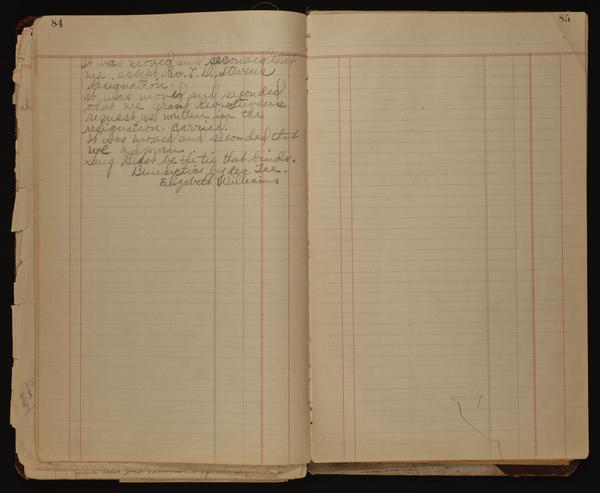 84
It was moved and seconded that
we accept Rev. T. D. Stevens
resignation.
It was moved and seconded
that we grant Rev. Stevens
request as written in the
resignation. Carried.
It was moved and seconded that
we adjourn.
Sang Blest be the tie that binds.
Benediction by Rev. Lee.
Elizabeth Williams
85